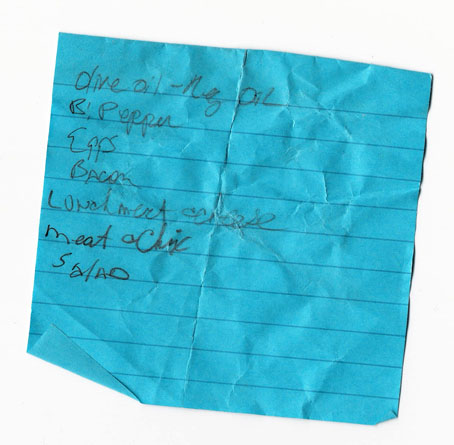 Olive oil - Veg oil
B. Pepper
Eggs
Bacon
Lunch meat & cheese
meat & Chic
Salad